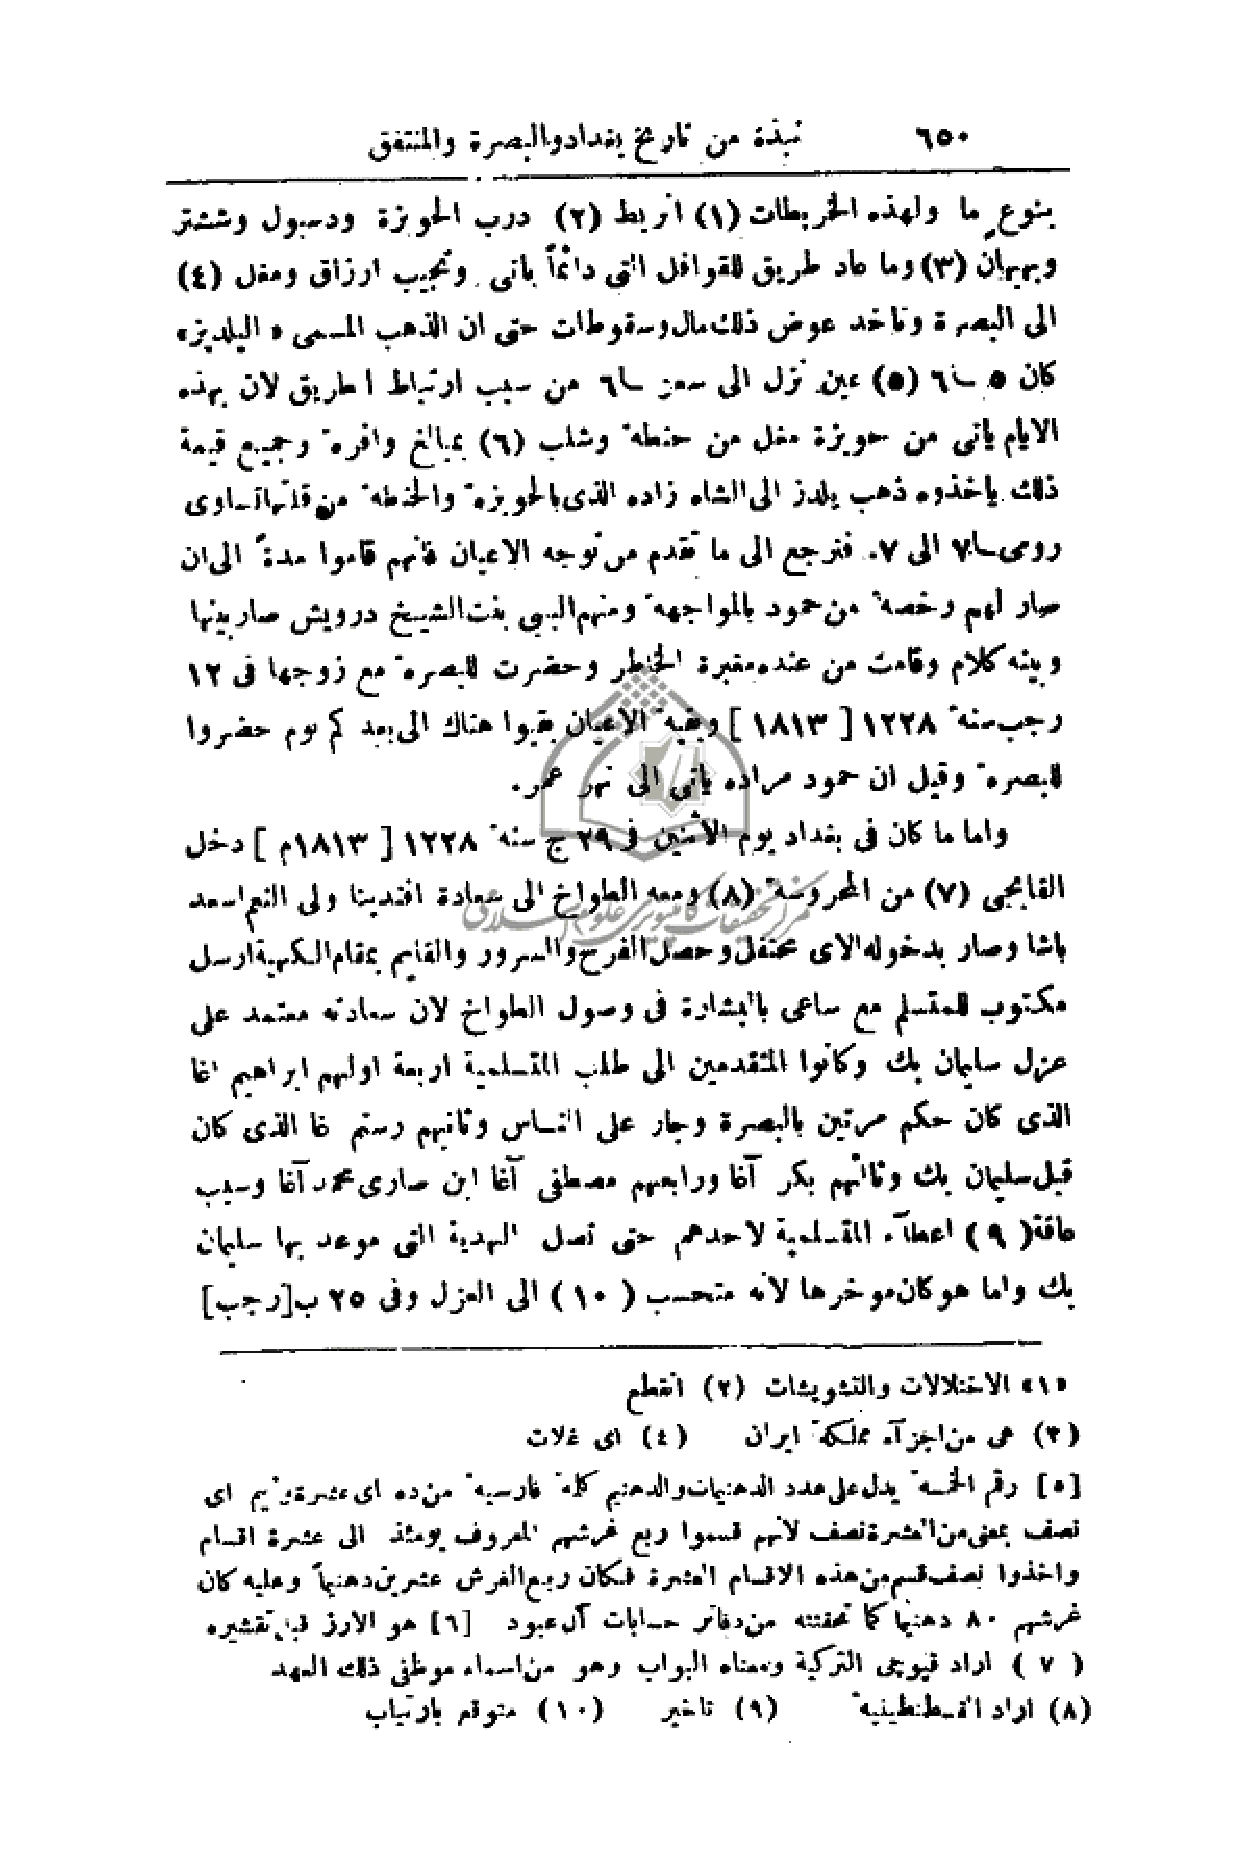 ٦٥٠ نبذة من تاريخ بغداد والبصرة والمنتفق
بنوع ما ولهذه الخربطات (١) انربط (٢) درب الحويزة ودسبول وششتر
وبهبهان (٣) وما عاد طريق للقوافل التى دائماً ياتى وتجيب ارزاق ومغل (٤)
الى البصرة وتاخد عوض ذلك مال وسقوطات حتى ان الذهب المسمى «اليلديز»
كان ٥ ٦ (٥) عين نزل الى سعر ٦ من سبب ارتباط الطريق لان بهذه
الايام ياتى من حويزة مغل من حنطة وشلب (٦) بمبالغ وافره وجميع قيمة
ذلك ياخذوه ذهب يلدز الى الشاه زاده الذى بالحويزه والحنطه من قلتها تساوى
رومى ٧ الى ٧. فنرجع الى ما تقدم من توجه الاعيان فانهم قاموا مدةً الى ان
صار لهم رخصة من حمود بالمواجهه ومنهم البيبى بنت الشيخ درويش صار بينها
وبينه كلام وقامت من عنده مغبرة الخاطر وحضرت للبصره مع زوجها فى ١٢
رجب سنه ١٢٢٨ [ ١٨١٣ ] وبقيه الاعيان بقيوا هناك الى بعد كم يوم حضروا
للبصره وقيل ان حمود مراده ياتى الى نهر عمر.
واما ما كان فى بغداد يوم الاثنين فى ٢٩ ج سنه ١٢٢٨ [ ١٨١٣م ] دخل
القابجى (٧) من المحروسة (٨) ومعه الطواخ الى سعادة افندينا ولى النعم اسعد
باشا وصار بدخوله الاى محتفل وحصل الفرح والسرور والقايم بمقام الكهية ارسل
مكتوب للمتسلم مع ساعى بالبشارة فى وصول الطواخ لان سعادته معتمد على
عزل سليمان بك وكانوا المتقدمين الى طلب المتسلمية اربعة اولهم ابراهيم اغا
الذى كان حكم مرتين بالبصرة وجار على الناس وثانيهم رستم غا الذى كان
قبل سليمان بك وثالثهم بكر آغا ورابعهم مصطفى آغا ابن صارى محمد آغا وسبب
عاقة (٩) اعطآء المتسلمية لاحدهم حتى تصل الهدية التى موعد بها سليمان
بك واما هو كان موخرها لأنه متحسب (١٠) الى العزل وفى ٢٥ ب[رجب]
«١» الاختلالات والتشويشات (٢) انقطع
(٣) هى من اجزآء مملكة ايران (٤) اى غلات
[٥] رقم الخمسة يدل على عدد الدهنيمات والدهنيم كلمة فارسية من ده اى عشرة ونيم اى
نصف بمعنى من العشرة نصف لأنهم قسموا ربع غرشهم المعروف يومئذ الى عشرة اقسام
واخذوا نصف قسم من هذه الاقسام العشرة فكان ربع الغرش عشرين دهنيماً وعليه كان
غرشهم ٨٠ دهنيما كما تحققته من دفاتر حسابات آل عبود [٦] هو الارز قبل تقشيره
(٧) اراد قپوچى التركية ومعناه البواب وهو من اسماء موظفى ذلك العهد
(٨) اراد القسطنطينية (٩) تاخير (١٠) متوقع بارتياب